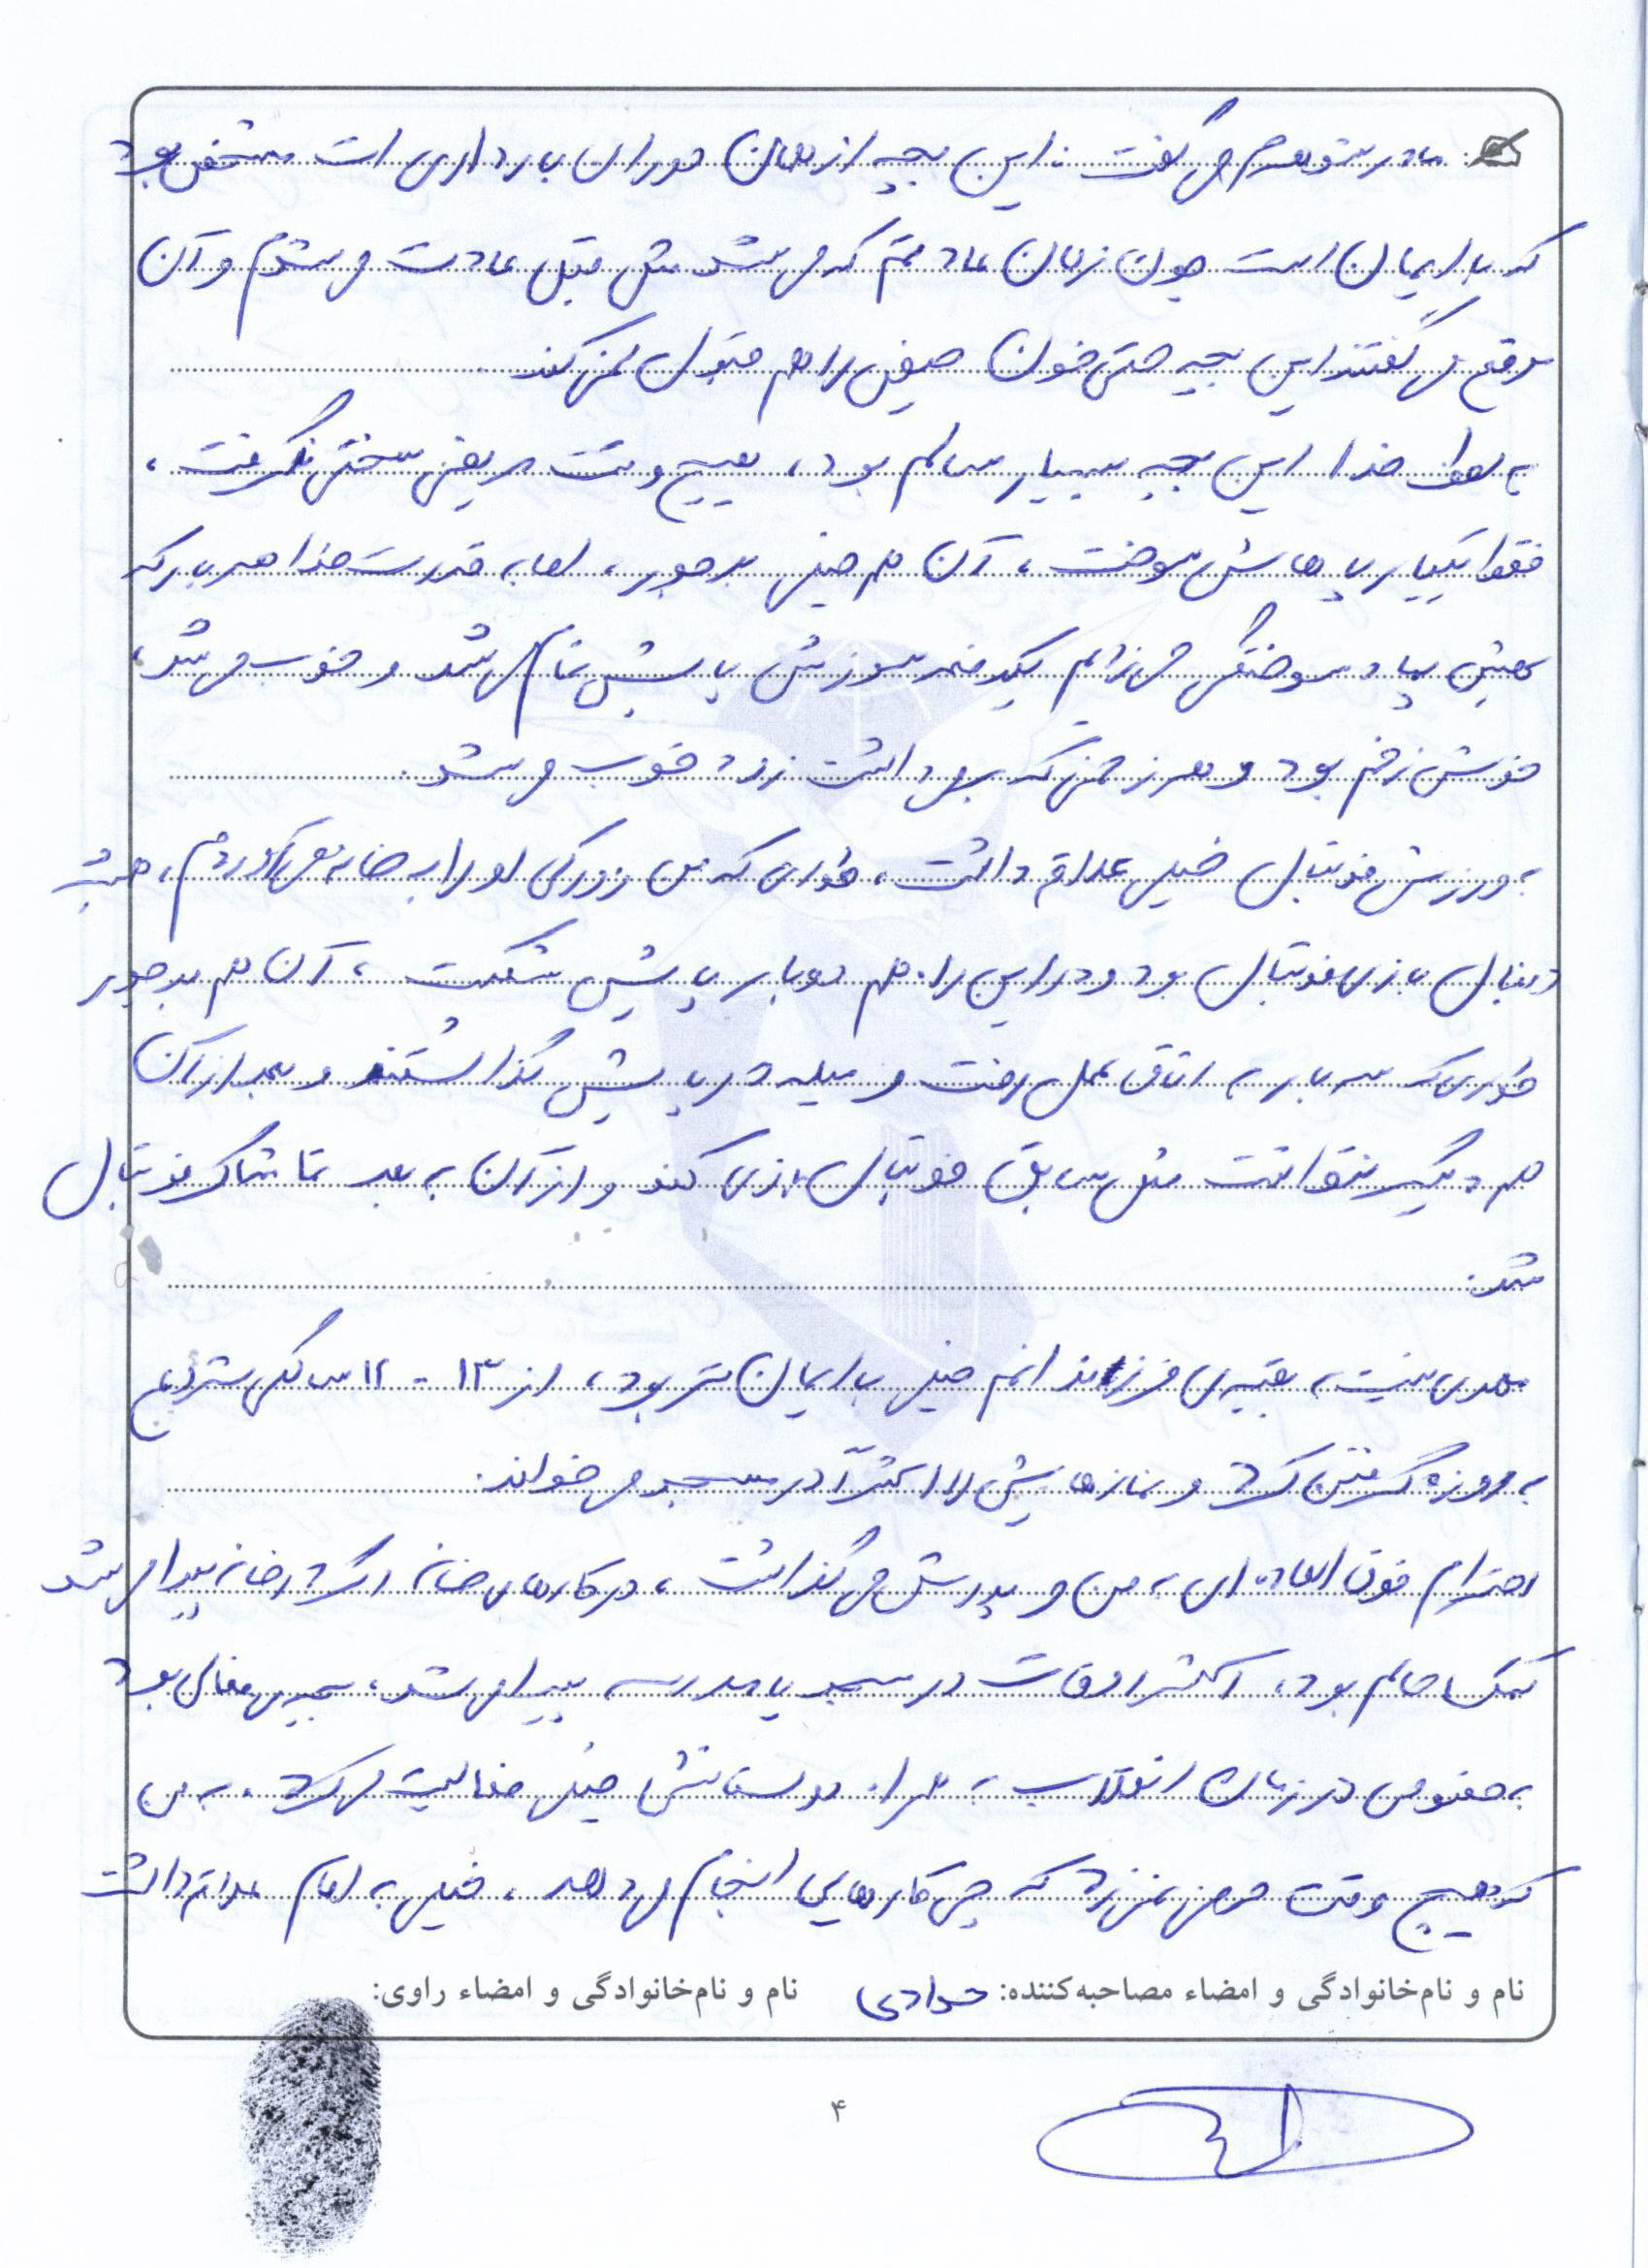 مادر شوهرم می گفت : این بچه از همان دوران بارداری ات مشخص بود
که با ایمان است چون زمان عادتم که می شد مثل قبل عادت می شدم و آن
موقع می گفتند این بچه حتی خون حیض را هم قبول نمی کند .
به لطف خدا این بچه بسیار سالم بود ، هیچ وقت مریضی سختی نگرفت ،
فقط یکبار پاهایش سوخت ، آن هم خیلی بد جور ، اما به قدرت خدا هر بار که
بهش پماد سوختگی می زدم یکدفعه سوزش پایش تمام می شد و خوب می شد ،
خوش زخم بود و هر زخمی که بر می داشت زود خوب می شد .
به ورزش فوتبال خیلی علاقه داشت ، طوری که من زورکی او را به خانه می آوردم ، همیشه
دنبال بازی فوتبال بود و در این راه هم دوبار پایش شکست ، آن هم بد جور
طوری که سه بار به اتاق عمل رفت و میله در پایش گذاشتند و بعد از آن
هم دیگر نتوانست مثل سابق فوتبال بازی کند و از آن به بعد تماشاگر فوتبال
شد .
مهدی نسبت به بقیه ی فرزندانم خیلی با ایمان تر بود ، از ۱۳ - ۱۲ سالگی شروع
به روزه گرفتن کرد و نمازهایش را اکثراً در مسجد می خواند .
احترام فوق العاده ای به من و پدرش می گذاشت ، در کارهای خانه اگر در خانه پیدا می شد
کمک حالم بود ، اکثر اوقات در مسجد یا مدرسه پیدا می شد ، بچه ی فعالی بود
به خصوص در زمان انقلاب به همراه دوستانش خیلی فعالیت می کرد ، به من
که هیچ وقت حرفی نمی زد که چی کارهایی انجام می دهد ، خیلی به امام علاقه داشت
نام و نام‌خانوادگی و امضاء مصاحبه‌کننده: جوادی نام و نام‌خانوادگی و امضاء راوی:
۴